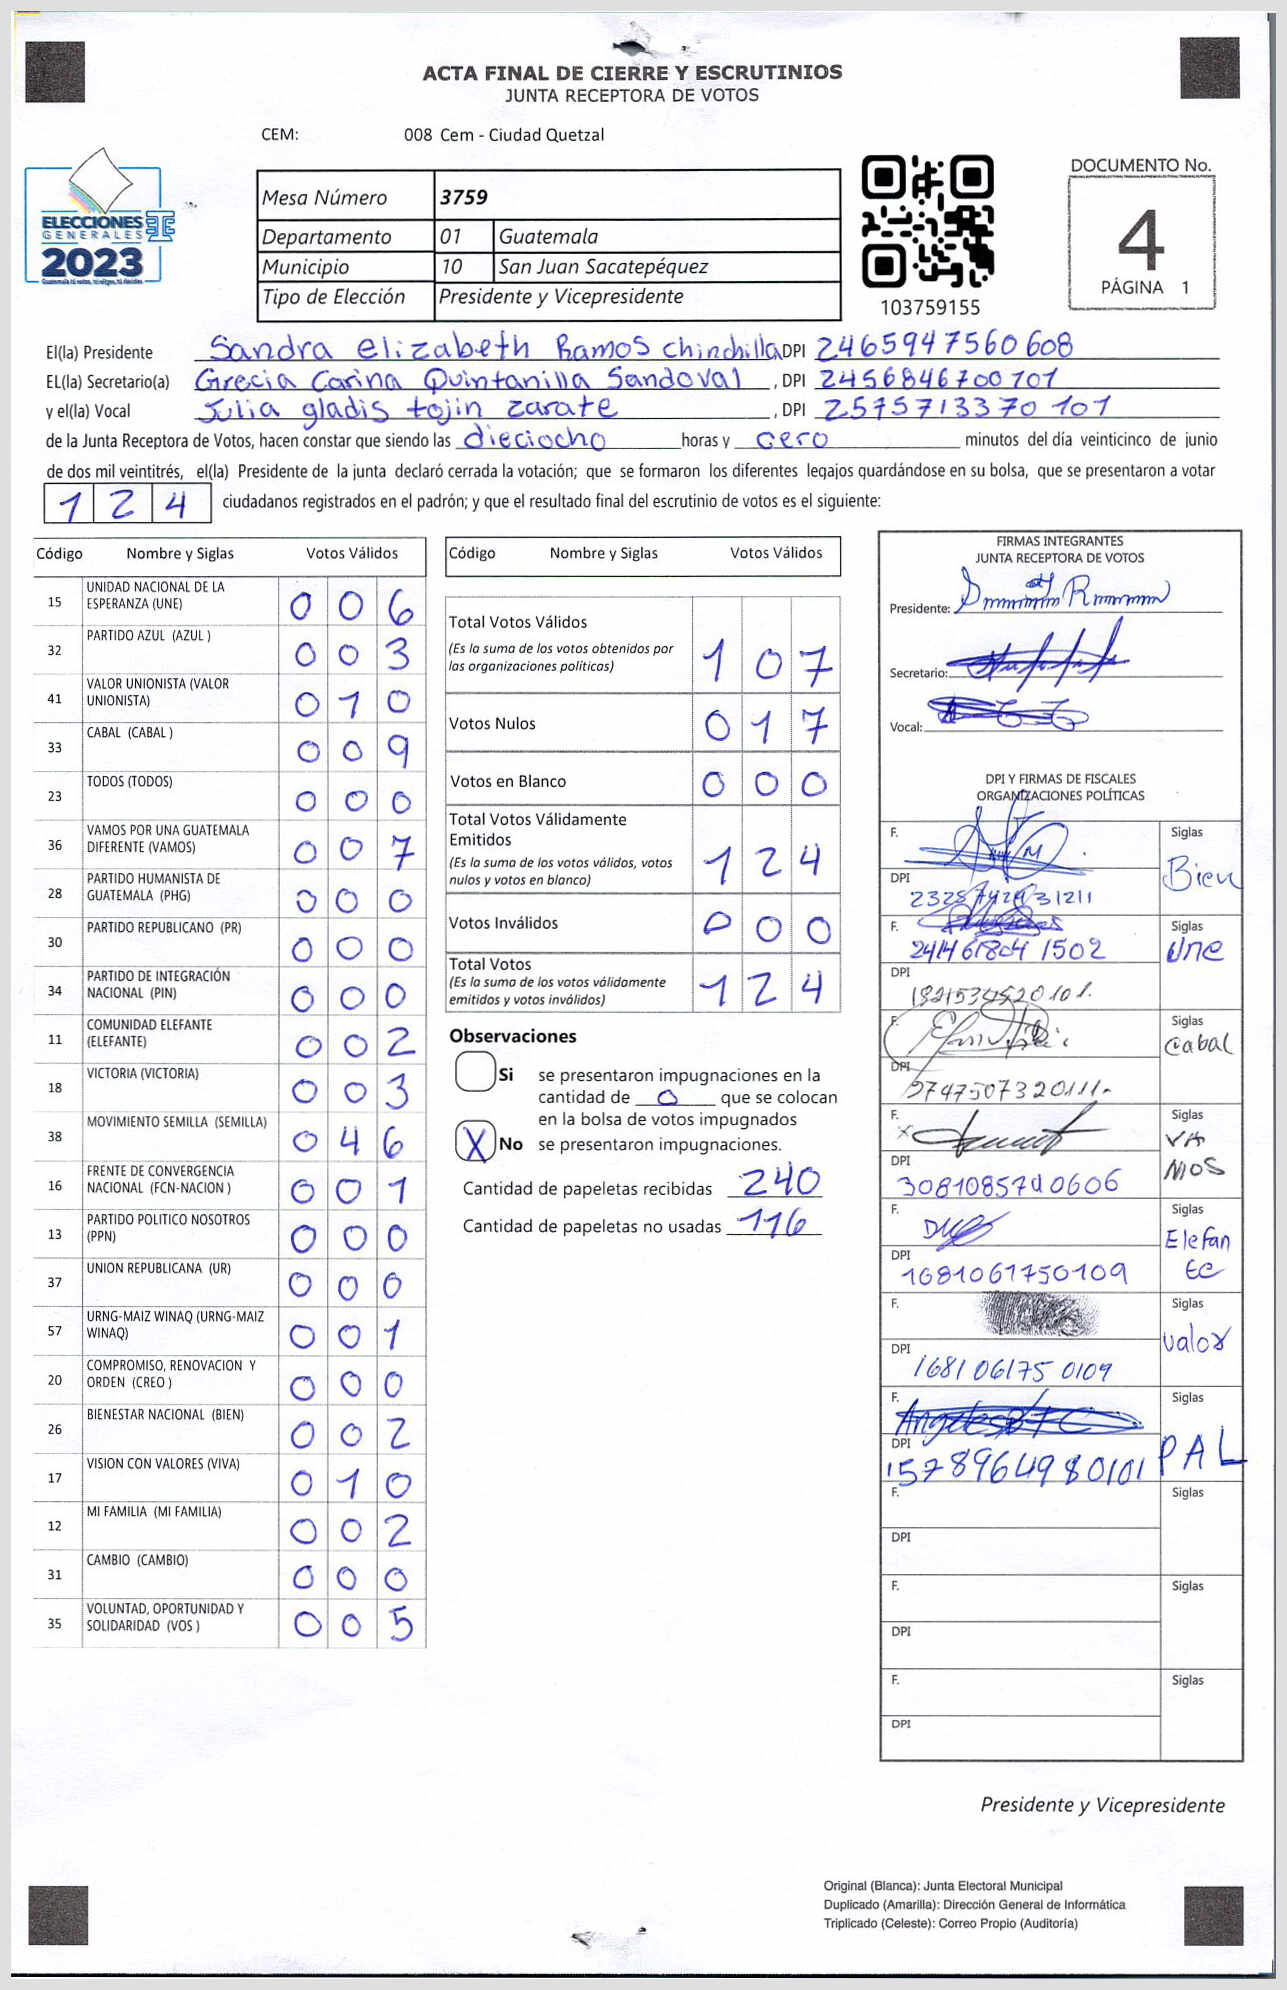 ACTA FINAL DE CIERRE Y ESCRUTINIOS
JUNTA RECEPTORA DE VOTOS
CEM: 008 Cem - Ciudad Quetzal
ELECCIONES
GENERALES
2023
Mesa Número 3759
Departamento 01 Guatemala
Municipio 10 San Juan Sacatepéquez
Tipo de Elección Presidente y Vicepresidente
103759155
DOCUMENTO No.
4
PÁGINA 1
El(la) Presidente Sandra elizabeth Ramos chinchilla DPI 2465947560608
EL(la) Secretario(a) Grecia Carina Quintanilla Sandoval , DPI 2456846700101
y el(la) Vocal Julia gladis tojin zarate , DPI 2575713370101
de la Junta Receptora de Votos, hacen constar que siendo las dieciocho horas y cero minutos del día veinticinco de junio
de dos mil veintitrés, el(la) Presidente de la junta declaró cerrada la votación; que se formaron los diferentes legajos guardándose en su bolsa, que se presentaron a votar
124 ciudadanos registrados en el padrón; y que el resultado final del escrutinio de votos es el siguiente:
Código Nombre y Siglas Votos Válidos
15 UNIDAD NACIONAL DE LA ESPERANZA (UNE) 006
32 PARTIDO AZUL (AZUL ) 003
41 VALOR UNIONISTA (VALOR UNIONISTA) 010
33 CABAL (CABAL ) 009
23 TODOS (TODOS) 000
36 VAMOS POR UNA GUATEMALA DIFERENTE (VAMOS) 007
28 PARTIDO HUMANISTA DE GUATEMALA (PHG) 000
30 PARTIDO REPUBLICANO (PR) 000
34 PARTIDO DE INTEGRACIÓN NACIONAL (PIN) 000
11 COMUNIDAD ELEFANTE (ELEFANTE) 002
18 VICTORIA (VICTORIA) 003
38 MOVIMIENTO SEMILLA (SEMILLA) 046
16 FRENTE DE CONVERGENCIA NACIONAL (FCN-NACION ) 001
13 PARTIDO POLITICO NOSOTROS (PPN) 000
37 UNION REPUBLICANA (UR) 000
57 URNG-MAIZ WINAQ (URNG-MAIZ WINAQ) 001
20 COMPROMISO, RENOVACION Y ORDEN (CREO ) 000
26 BIENESTAR NACIONAL (BIEN) 002
17 VISION CON VALORES (VIVA) 010
12 MI FAMILIA (MI FAMILIA) 002
31 CAMBIO (CAMBIO) 000
35 VOLUNTAD, OPORTUNIDAD Y SOLIDARIDAD (VOS ) 005
Código Nombre y Siglas Votos Válidos
Total Votos Válidos
(Es la suma de los votos obtenidos por
las organizaciones políticas) 107
Votos Nulos 017
Votos en Blanco 000
Total Votos Válidamente
Emitidos
(Es la suma de los votos válidos, votos
nulos y votos en blanco) 124
Votos Inválidos 000
Total Votos
(Es la suma de los votos válidamente
emitidos y votos inválidos) 124
Observaciones
Si se presentaron impugnaciones en la
cantidad de 0 que se colocan
en la bolsa de votos impugnados
X No se presentaron impugnaciones.
Cantidad de papeletas recibidas 240
Cantidad de papeletas no usadas 116
FIRMAS INTEGRANTES
JUNTA RECEPTORA DE VOTOS
Presidente:
Secretario:
Vocal:
DPI Y FIRMAS DE FISCALES
ORGANIZACIONES POLÍTICAS
F. Siglas
Bien
DPI
F. Siglas
Une
DPI
F. Siglas
Cabal
DPI 2747507320111
F. Siglas
VA
MOS
DPI
3081085740606
F. Siglas
Elefan
te
DPI
1681061750109
F. Siglas
valor
DPI
1681061750109
F. Siglas
PAL
DPI
1578964980101
F. Siglas
DPI
F. Siglas
DPI
F. Siglas
DPI
Presidente y Vicepresidente
Original (Blanca): Junta Electoral Municipal
Duplicado (Amarilla): Dirección General de Informática
Triplicado (Celeste): Correo Propio (Auditoría)